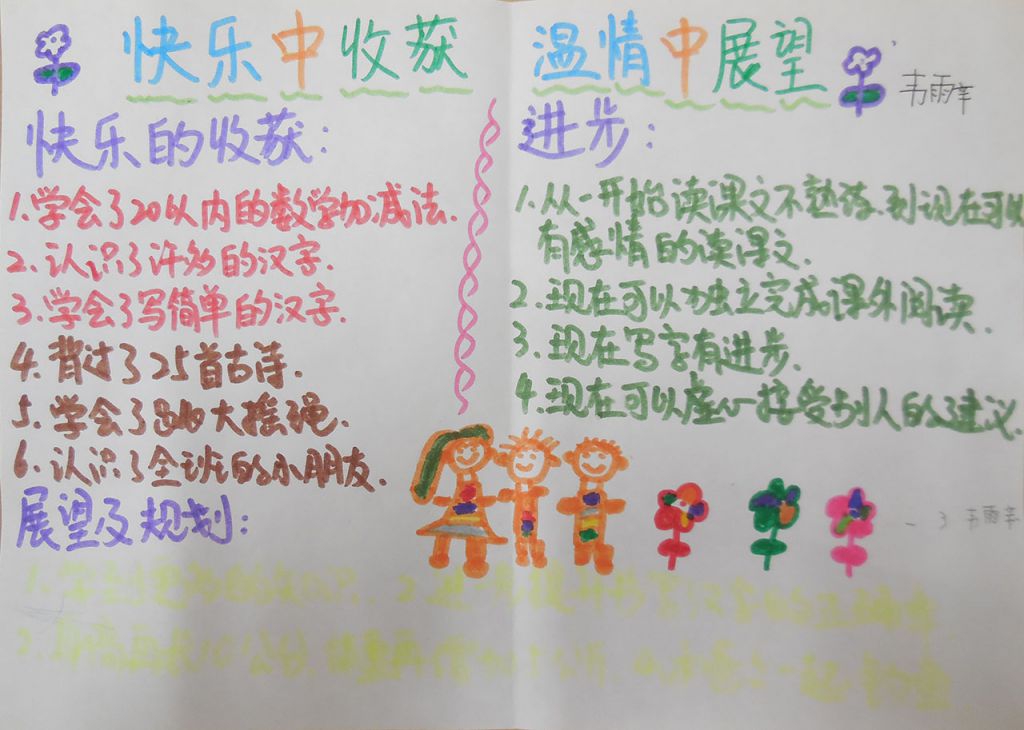 快乐中收获 温情中展望
韦雨辛
快乐的收获:
1.学会了20以内的数学加减法.
2.认识了许多的汉字.
3.学会了写简单的汉字.
4.背过了25首古诗.
5.学会了跳大摇绳.
6.认识了全班的小朋友.
进步:
1.从一开始读课文不熟练.到现在可以
有感情的读课文.
2.现在可以独立完成课外阅读.
3.现在写字有进步.
4.现在可以虚心接受别人的建议.
展望及规划:
一3 韦雨辛